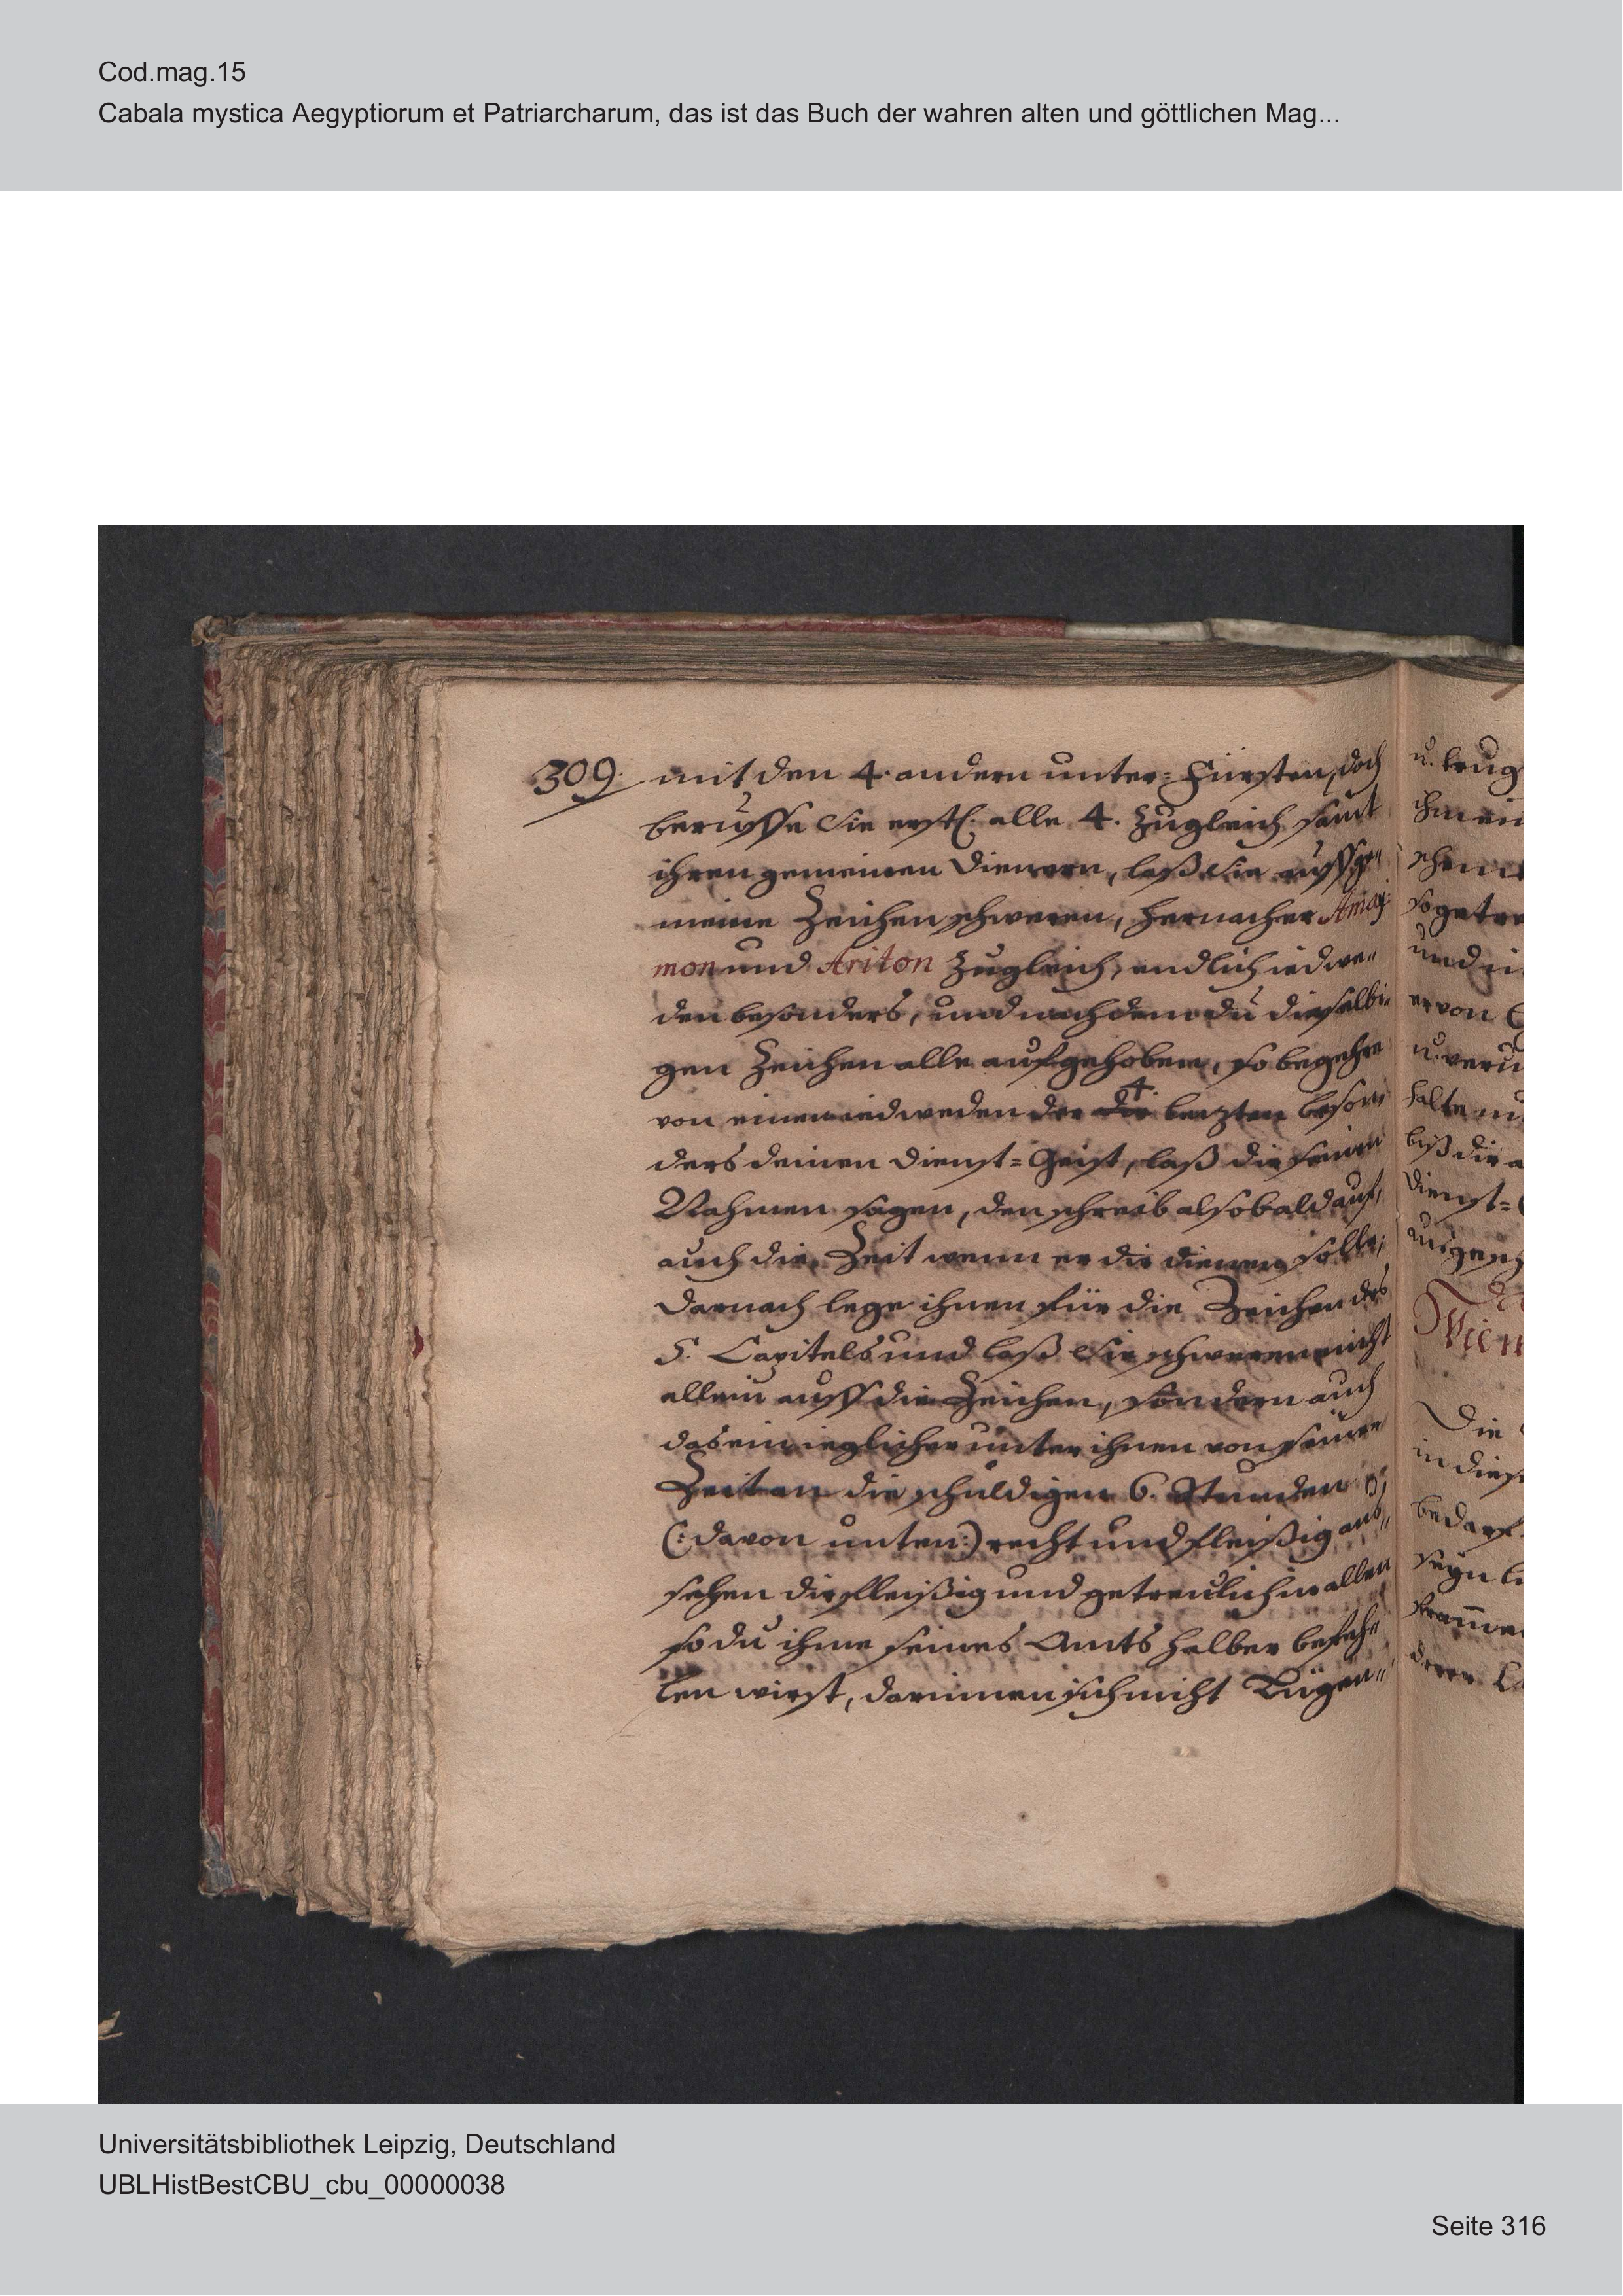 Cod.mag.15
Cabala mystica Aegyptiorum et Patriarcharum, das ist das Buch der wahren alten und göttlichen Mag...
309. mit den 4. andern unter=Fürsten, doch
beruffe Sie erstl. alle 4. zugleich samt
ihren gemeinen Dienern, laß Sie auff ge„
meine Zeichen schweren, hernacher Amay„
mon und Ariton zugleich, endlich iedwe„
den besonders, und nachdem du dieselbi„
gen Zeichen alle aufgehoben, so begehre
von einem iedweden der 4. letzten beson„
ders deinen Dienst=Geist, laß dir seinen
Nahmen sagen, den schreib alsobald auf,
auch die Zeit wenn er dir dienen solle;
Darnach lege ihnen für die Zeichen des
5. Capitels und laß Sie schweren nicht
allein auff die Zeichen, sondern auch
das ein ieglicher unter ihnen von seiner
Zeit an die schuldigen 6. Stunden
(:davon unten:) recht und fleißig
sehen dir fleißig und getreulich in allen
so du ihme seines Amts halber befeh„
len wirst, darinnen sich nicht Lügen„
u. trug
ihm ein
so getre
und in
er von
halte
biß dir a
Dienst=
Die
in diese
bedarf
seyn
Universitätsbibliothek Leipzig, Deutschland
UBLHistBestCBU_cbu_00000038
Seite 316